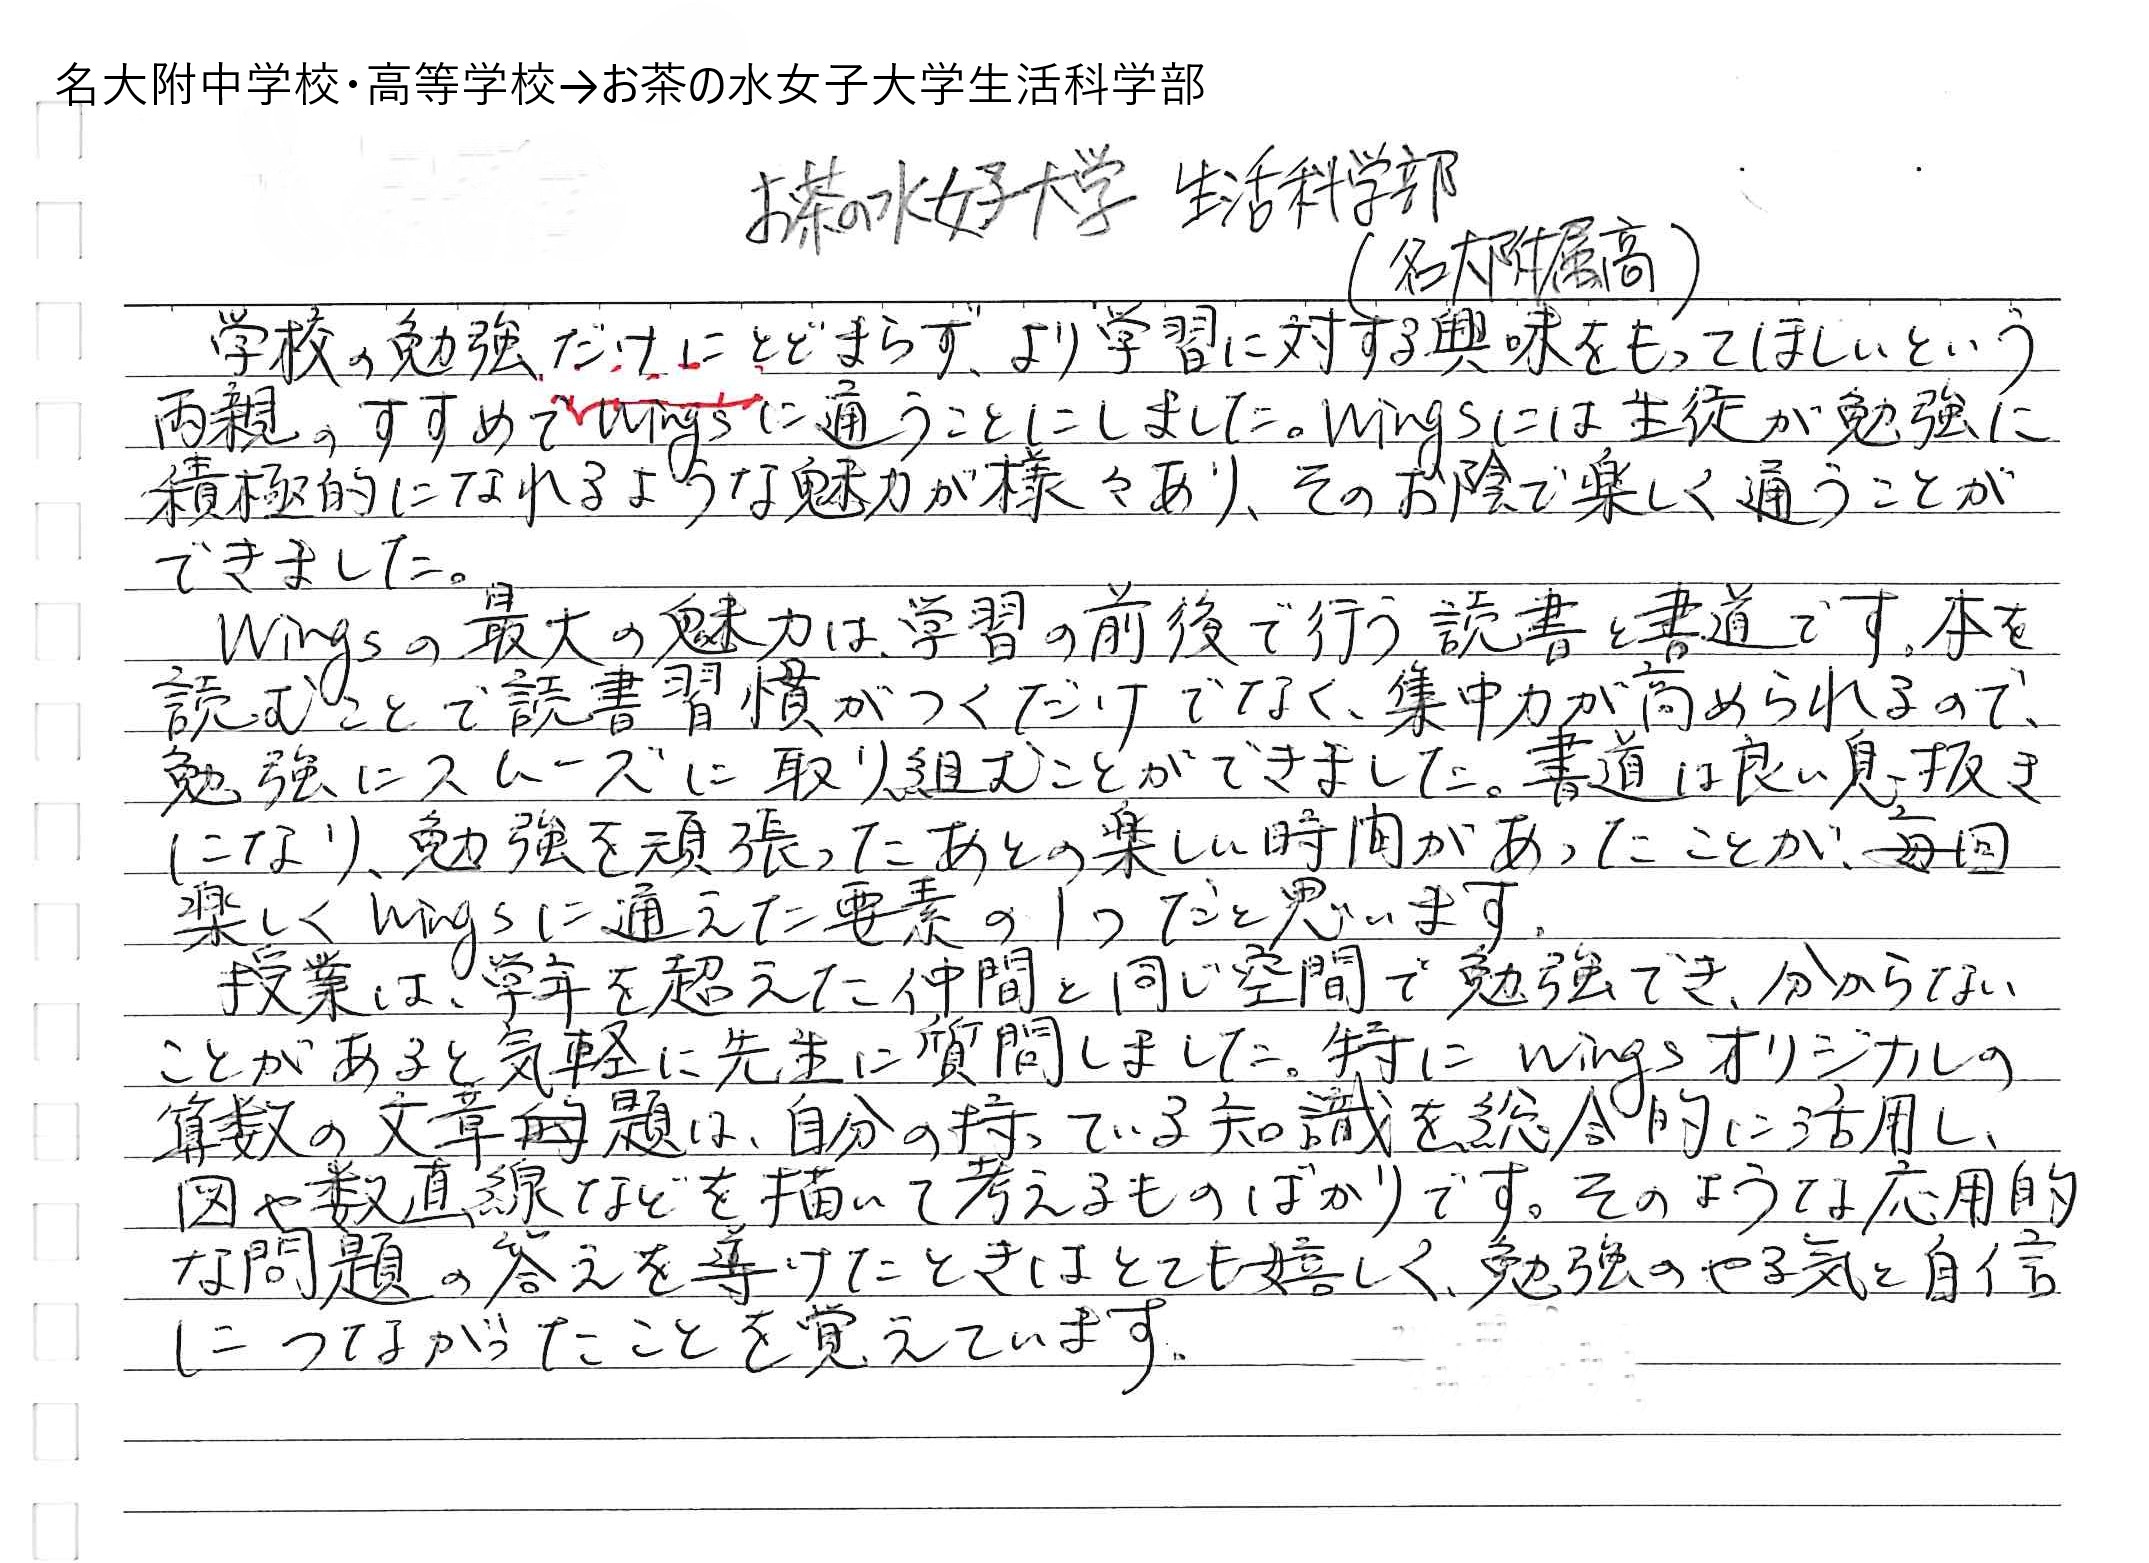 名大附中学校・高等学校→お茶の水女子大学生活科学部
お茶の水女子大学 生活科学部
(名大附属高)
学校の勉強だけにとどまらず、より学習に対する興味をもってほしいという
両親のすすめでWingsに通うことにしました。Wingsには生徒が勉強に
積極的になれるような魅力が様々あり、そのお陰で楽しく通うことが
できました。
Wingsの最大の魅力は、学習の前後で行う読書と書道です。本を
読むことで読書習慣がつくだけでなく、集中力が高められるので、
勉強にスムーズに取り組むことができました。書道は良い息抜き
になり、勉強を頑張ったあとの楽しい時間があったことが、毎回
楽しくWingsに通えた要素の1つだと思います。
授業は、学年を超えた仲間と同じ空間で勉強でき、分からない
ことがあると気軽に先生に質問しました。特にWingsオリジナルの
算数の文章題は、自分の持っている知識を総合的に活用し、
図や数直線などを描いて考えるものばかりです。そのような応用的
な問題の答えを導けたときはとても嬉しく、勉強のやる気と自信
につながったことを覚えています。